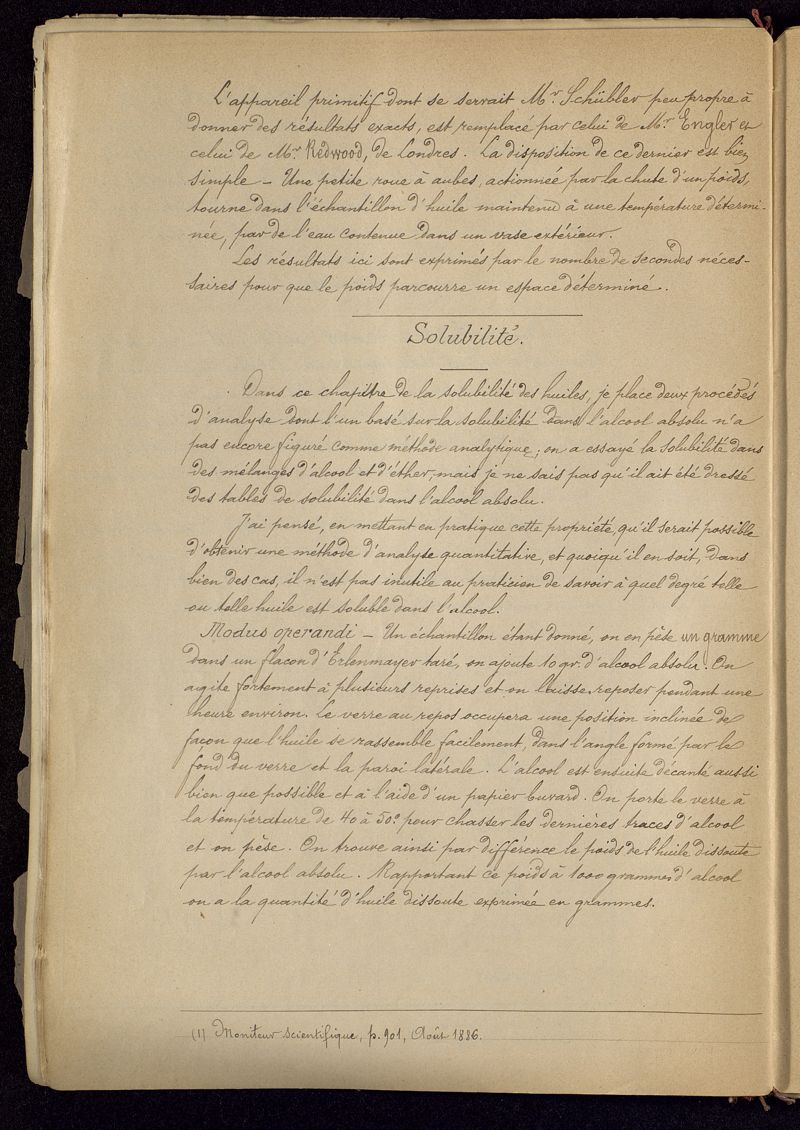 L'appareil primitif dont se servait Mr. Schübler peu propre à
donner des résultats exacts, est remplacé par celui de Mr. Engler et
celui de Mr. Redwood, de Londres. La disposition de ce dernier est bien
simple — Une petite roue à aubes, actionnée par la chute d'un poids,
tourne dans l'échantillon d'huile maintenu à une température détermi-
née, par de l'eau contenue dans un vase extérieur.
Les résultats ici sont exprimés par le nombre de secondes néces-
saires pour que le poids parcourre un espace déterminé.
Solubilité.
Dans ce chapitre de la solubilité des huiles, je place deux procédés
d'analyse dont l'un basé sur la solubilité dans l'alcool absolu n'a
pas encore figuré comme méthode analytique; on a essayé la solubilité dans
des mélanges d'alcool et d'éther, mais je ne sais pas qu'il ait été dressé
des tables de solubilité dans l'alcool absolu.
J'ai pensé, en mettant en pratique cette propriété, qu'il serait possible
d'obtenir une méthode d'analyse quantitative, et quoiqu'il en soit, dans
bien des cas, il n'est pas inutile au praticien de savoir à quel degré telle
ou telle huile est soluble dans l'alcool.
Modus operandi — Un échantillon étant donné, on en pèse un gramme
dans un flacon d'Erlenmayer taré, on ajoute 10 gr. d'alcool absolu. On
agite fortement à plusieurs reprises et on laisse reposer pendant une
heure environ. Le verre au repos occupera une position inclinée de
façon que l'huile se rassemble facilement, dans l'angle formé par le
fond du verre et la paroi latérale. L'alcool est ensuite décanté aussi
bien que possible et à l'aide d'un papier buvard. On porte le verre à
la température de 40 à 50° pour chasser les dernières traces d'alcool
et on pèse. On trouve ainsi par différence le poids de l'huile dissoute
par l'alcool absolu. Rapportant ce poids à 1000 grammes d'alcool
on a la quantité d'huile dissoute exprimée en grammes.
(1) Moniteur scientifique, p. 901, Août 1886.